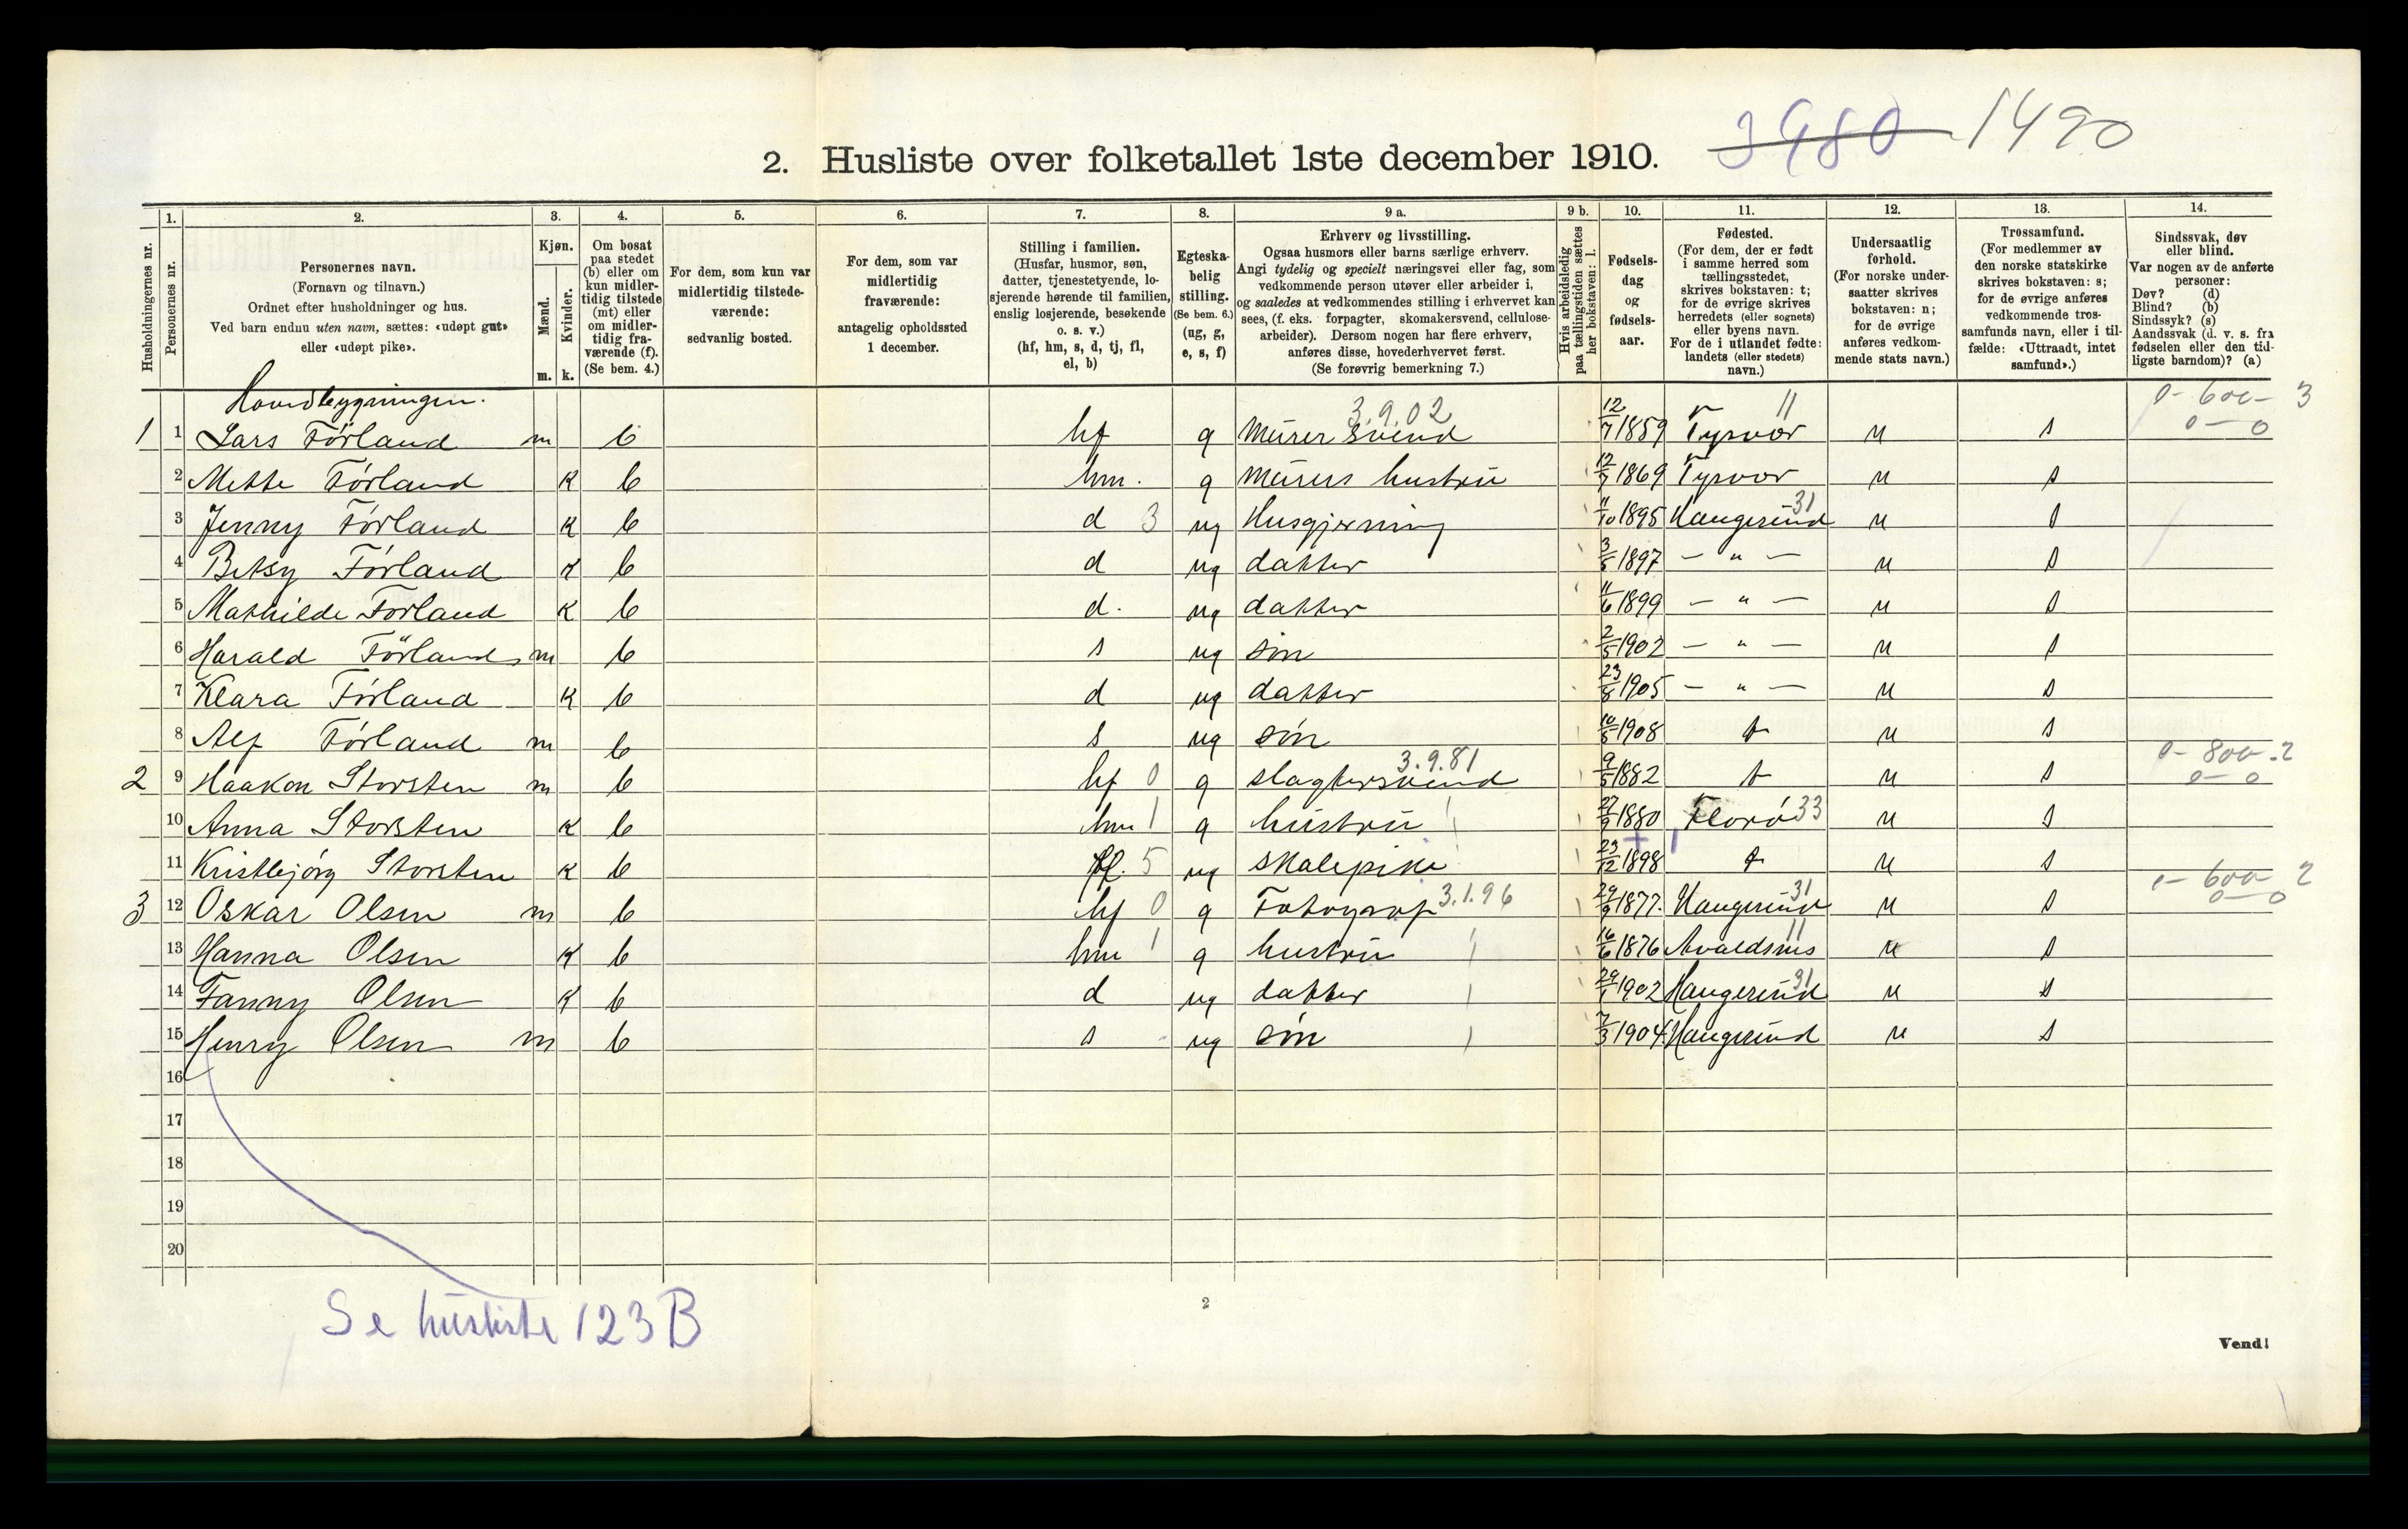 3980 1490
2. Husliste over folketallet 1ste december 1910.
Husholdningernes nr.
1.
Personernes nr.
2.
Personernes navn.
(Fornavn og tilnavn.)
Ordnet efter husholdninger og hus.
Ved barn endnu uten navn, sættes: «udøpt gut»
eller «udøpt pike».
3.
Kjøn.
Mænd.
Kvinder.
m. k.
4.
Om bosat
paa stedet
(b) eller om
kun midler-
tidig tilstede
(mt) eller
om midler-
tidig fra-
værende (f).
(Se bem. 4.)
5.
For dem, som kun var
midlertidig tilstede-
værende:
sedvanlig bosted.
6.
For dem, som var
midlertidig
fraværende:
antagelig opholdssted
1 december.
7.
Stilling i familien.
(Husfar, husmor, søn,
datter, tjenestetyende, lo-
sjerende hørende til familien,
enslig losjerende, besøkende
o. s. v.)
(hf, hm, s, d, tj, fl,
el, b)
8.
Egteska-
belig
stilling.
(Se bem. 6.)
(ug, g,
e, s, f)
9 a.
Erhverv og livsstilling.
Ogsaa husmors eller barns særlige erhverv.
Angi tydelig og specielt næringsvei eller fag, som
vedkommende person utøver eller arbeider i,
og saaledes at vedkommendes stilling i erhvervet kan
sees, (f. eks. forpagter, skomakersvend, cellulose-
arbeider). Dersom nogen har flere erhverv,
anføres disse, hovederhvervet først.
(Se forøvrig bemerkning 7.)
9 b.
Hvis arbeidsledig
paa tællingstiden sættes
her bokstaven: l.
10.
Fødsels-
dag
og
fødsels-
aar.
11.
Fødested.
(For dem, der er født
i samme herred som
tællingsstedet,
skrives bokstaven: t;
for de øvrige skrives
herredets (eller sognets)
eller byens navn.
For de i utlandet fødte:
landets (eller stedets)
navn.)
12.
Undersaatlig
forhold.
(For norske under-
saatter skrives
bokstaven: n;
for de øvrige
anføres vedkom-
mende stats navn.)
13.
Trossamfund.
(For medlemmer av
den norske statskirke
skrives bokstaven: s;
for de øvrige anføres
vedkommende tros-
samfunds navn, eller i til-
fælde: «Uttraadt, intet
samfund».)
14.
Sindssvak, døv
eller blind.
Var nogen av de anførte
personer:
Døv? (d)
Blind? (b)
Sindssyk? (s)
Aandssvak (d. v. s. fra
fødselen eller den tid-
ligste barndom)? (a)
Hovedbygningen. 3.9.02 11 0-600- 3
1 1 Lars Förland m b hf g Murer svend 12/7 1859 Tysvær n s 0-0
2 Mette Förland k b hm. g Murers hustru 12/7 1869 Tysvær n s
3 Jenny Förland k b d 3 ug Husgjerning 11/10 1895 Haugesund 31 n s
4 Betsy Förland k b d ug datter 3/5 1897 — " — n s
5 Mathilde Förland k b d. ug datter 11/6 1899 — " — n s
6 Harald Förland m b s ug søn 2/5 1902 — " — n s
7 Klara Förland k b d ug datter 23/8 1905 — " — n s
8 Alf Förland m b s ug søn 10/5 1908 t n s
2 9 Haakon Storsten m b hf 0 g slagtersvend 3.9.81 9/5 1882 t n s 0-800-2 0-0
10 Anna Storsten k b hm 1 g hustru 27/9 1880 Florø 33 n s
11 Kristbjörg Storsten k b fl. 5 ug skolepike 23/12 1898 t n s
3 12 Oskar Olsen m b hf 0 g Fotograf 3.1.96 29/9 1877. Haugesund 31 n s 0-600 2 0-0
13 Hanna Olsen k b hm 1 g hustru 16/6 1876 Avaldsnes 11 n s
14 Fanny Olsen k b d ug datter 29/1 1902 Haugesund 31 n s
15 Henry Olsen m b s ug søn 7/3 1904. Haugesund n s
16
17
18
19
20
Se husliste 123 B
2
Vend!